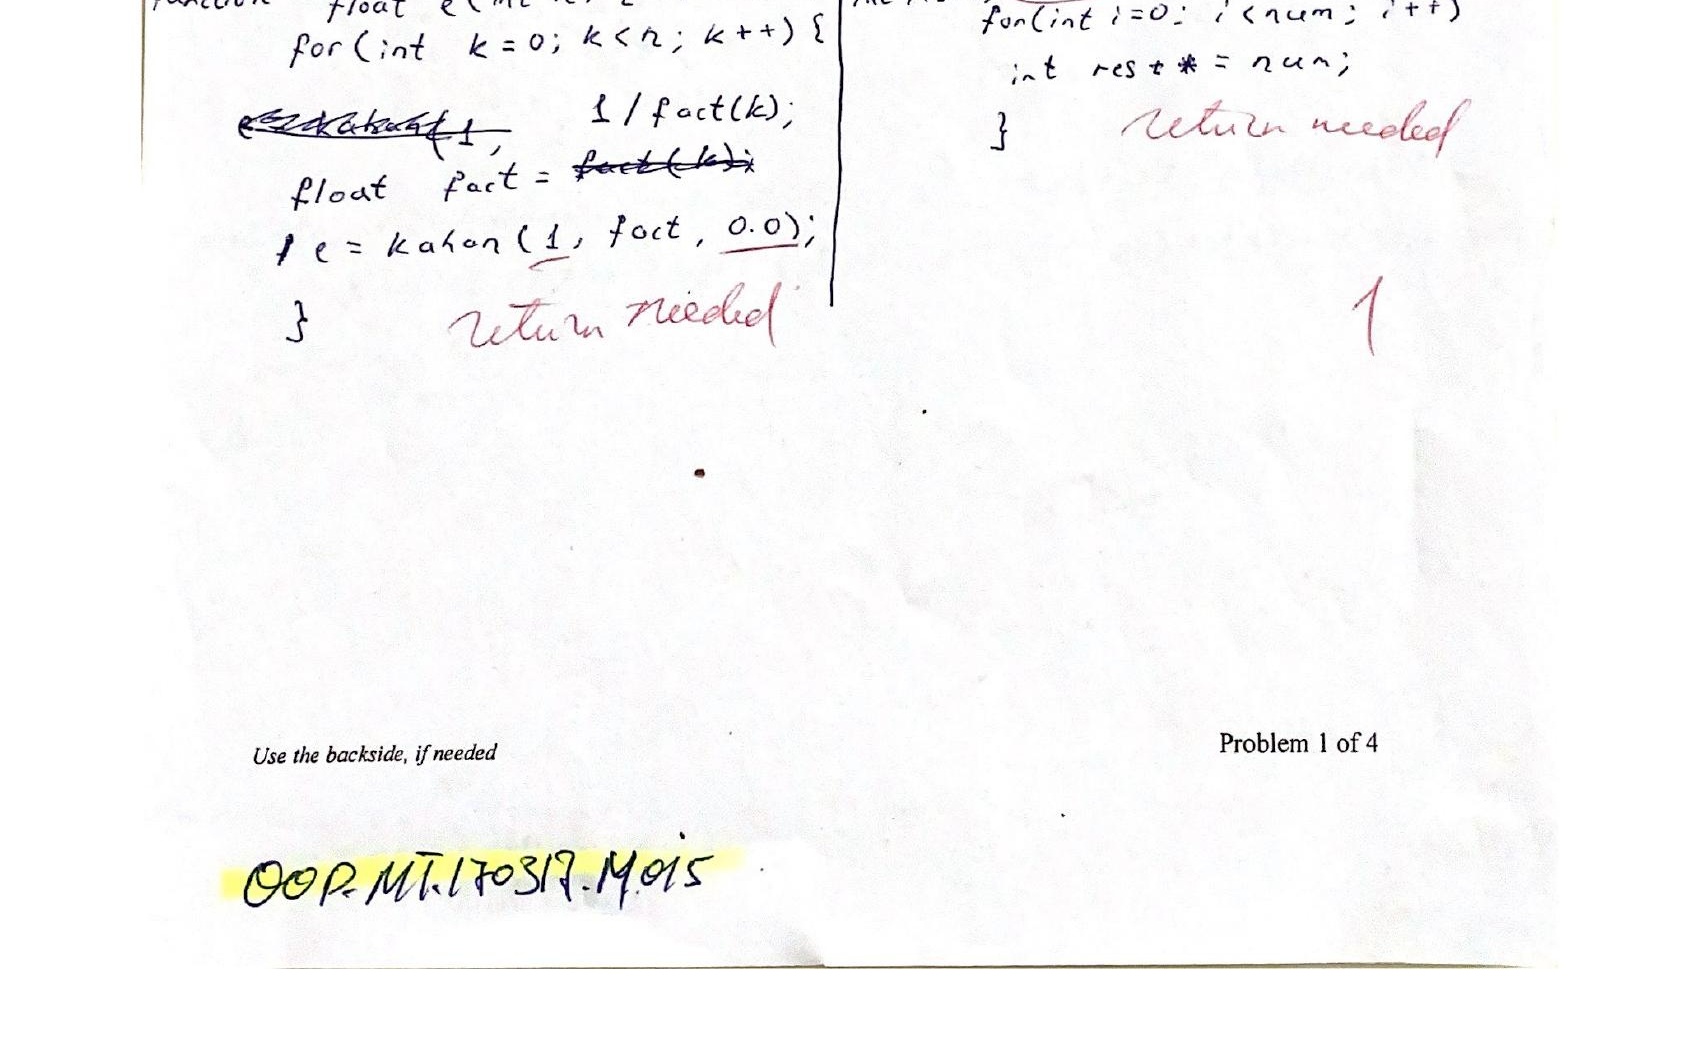 float e(int
for(int k=0; k<n; k++) {
1/fact(k);
float fact = fact(k);
e = kahan(1, fact, 0.0);
}
return needed
for(int i=0; i<num; i++)
int res *= num;
}
return needed
1
Use the backside, if needed
Problem 1 of 4
OOP.MT.170317.M.015